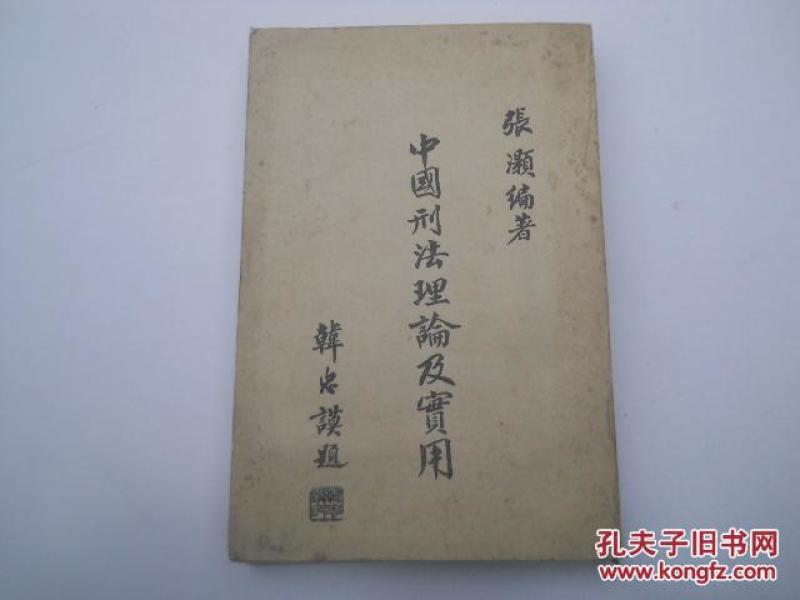 張灝編著
中國刑法理論及實用
韓忠謨題
孔夫子旧书网
www.kongfz.com